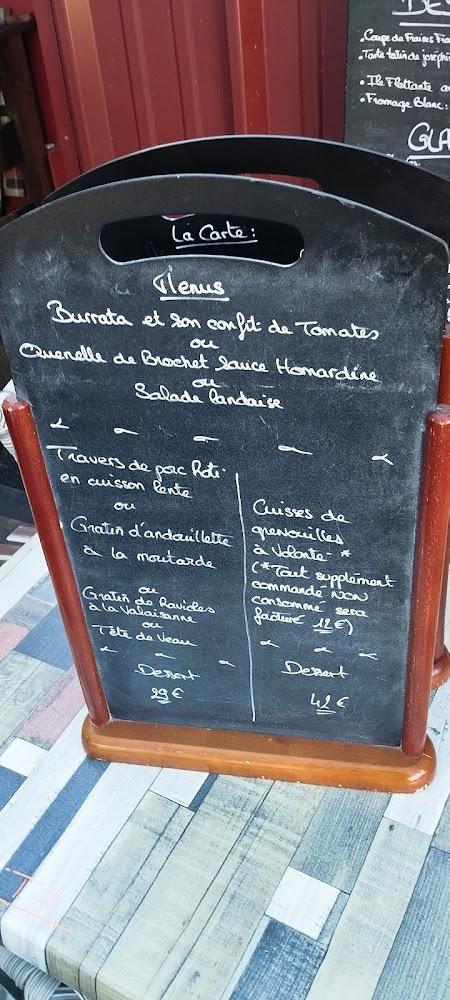 La Carte :
Menus
Burrata et son confit de Tomates
ou
Quenelle de Brochet Sauce Homardine
ou
Salade landaise
Travers de porc Roti
en cuisson lente
ou
Gratin d'andouillette
à la moutarde
ou
Gratin de Ravioles
à la Valaisanne
ou
Tête de Veau
Dessert
29 €
Cuisses de
grenouilles
à Volonté *
(*Tout supplément
commandé NON
consommé sera
facturé 12 €)
Dessert
42 €
DES
• Coupe de Fraises Fra
• Tarte tatin de joséphi
• Ile Flottante
• Fromage Blanc :
GLA